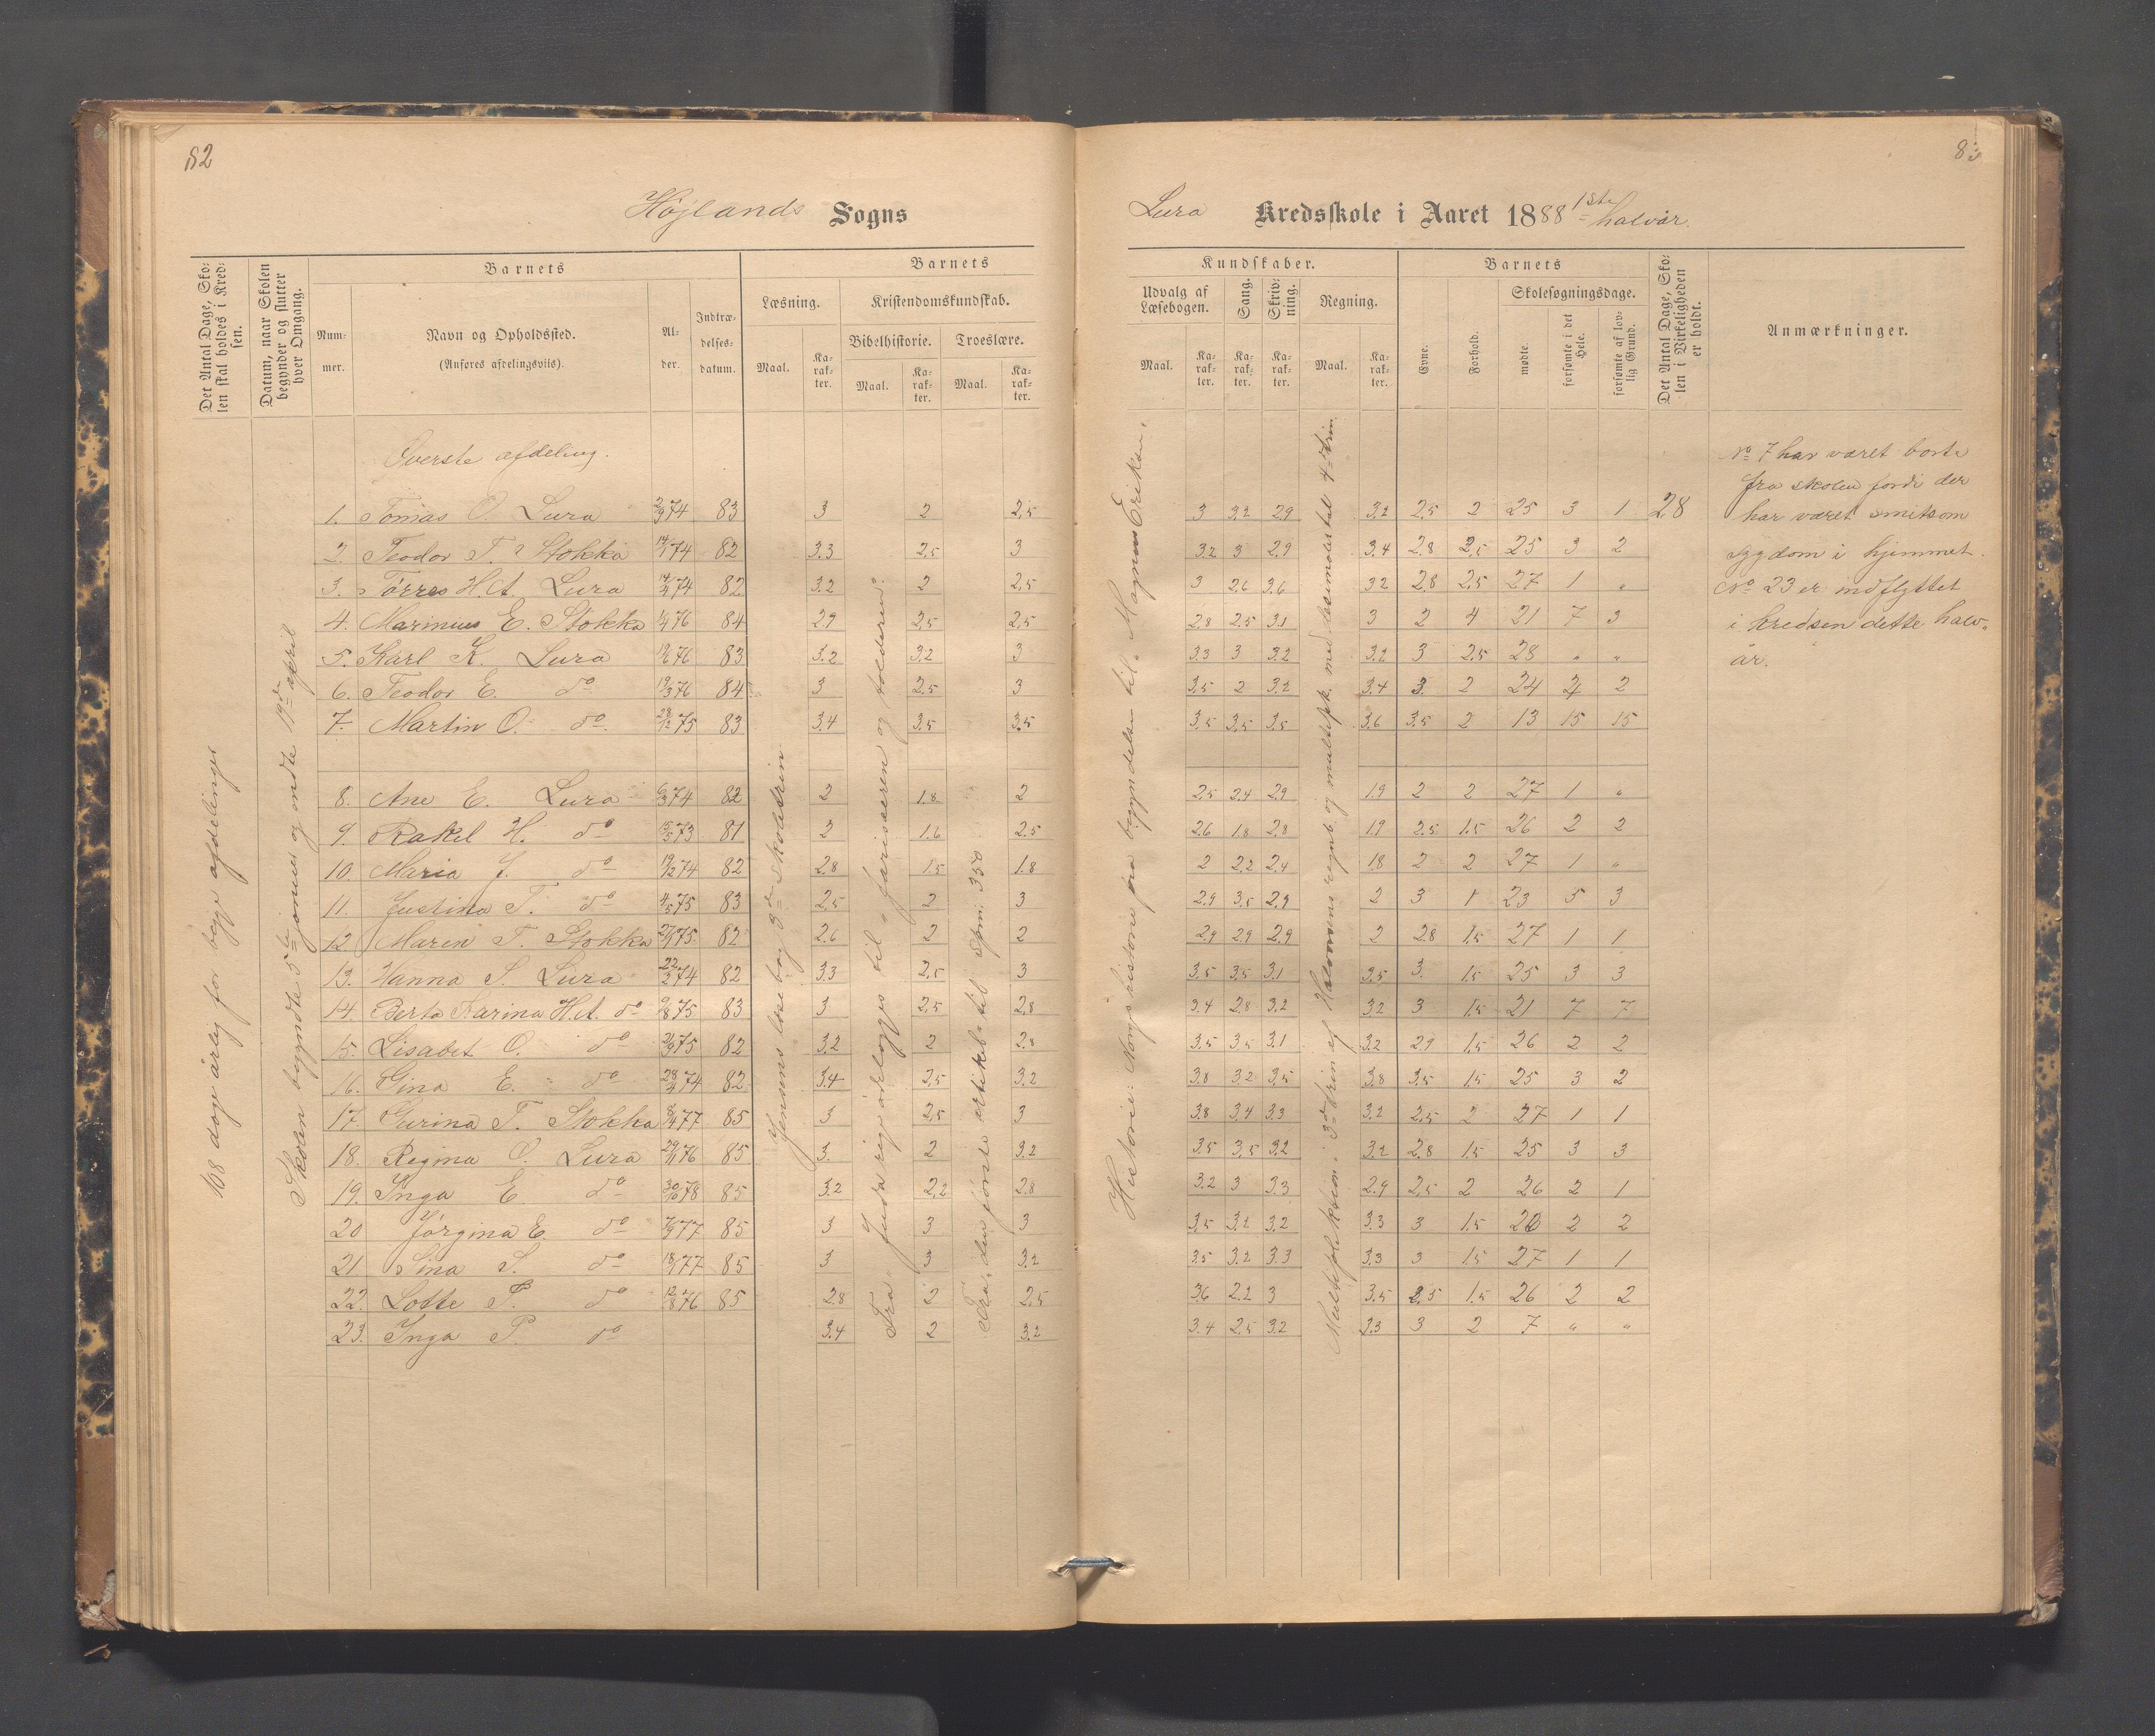 82
Højlands Sogns
Det Antal Dage, Sko-
len skal holdes i Kred-
sen.
Datum, naar Skolen
begynder og slutter
hver Omgang.
Barnets
Num-
mer.
Navn og Opholdssted.
(Anføres afdelingsviis).
Al-
der.
Indtræ-
delses-
datum.
Barnets
Læsning.
Maal.
Ka-
rak-
ter.
Kristendomskundskab.
Bibelhistorie.
Troeslære.
Maal.
Ka-
rak-
ter.
Maal.
Ka-
rak-
ter.
168 dage årlig for begge afdelinger
Skolen begyndte 5te januar og endte 19de april
Jensens læsebog 3de skoletrin
Fra Juda rige ødelegges til „farisæeren og tolderen“.
Fra den første artikel til spm. 350
Øverste afdeling.
1. Tomas O. Lura 2/9 74 83 3 2 2,5
2. Teodor T. Stokka 14/1 74 82 3.3 2,5 3
3. Tørres H.A. Lura 14/4 74 82 3.2 2 2,5
4. Marinius E. Stokka 1/4 76 84 2.9 2,5 2,5
5. Karl K. Lura 76 83 3.2 3.2 3
6. Teodor E. do 19/3 76 84 3 2.5 3
7. Martin O. do 28/12 75 83 3.4 3.5 3.5
8. Ane E. Lura 6/3 74 82 2 1.8 2
9. Rakel H. do 15/5 73 81 2 1.6 2.5
10. Maria J. do 19/12 74 82 2.8 1.5 1.8
11. Justina T. do 4/5 75 83 2,5 2 3
12 Maren T. Stokka 27/1 75 82 2.6 2 2
13. Hanna S. Lura 22/2 74 82 3.3 2,5 3
14. Berta Karina H.A. do 9/8 75 83 3 2,5 2,8
15. Lisabet O. do 2/9 75 82 3.2 2 2.8
16. Gina E. do 28/4 74 82 3.4 2,5 3.2
17. Gurina T. Stokka 8/4 77 85 3 2,5 3
18. Regina O. Lura 29/1 76 85 3. 2 3.2
19. Inga E. do 30/10 78 85 3.2 2,2 2.8
20 Jørgina E. do 7/9 77 85 3 3 3
21 Sina S. do 77 85 3 3 3,2
22. Lotte P. do 12/8 76 85 2.8 2 2,5
23. Inga P. do 3.4 2 3.2
83
Lura Kredsskole i Aaret 1888 1ste halvår.
Kundskaber.
Udvalg af
Læsebogen.
Maal.
Ka-
rak-
ter.
Sang.
Ka-
rak-
ter.
Skriv-
ning.
Ka-
rak-
ter.
Regning.
Maal.
Ka-
rak-
ter.
Barnets
Evne.
Forhold.
Skolesøgningsdage.
mødte.
forsømte i det
Hele.
forsømte af lov-
lig Grund.
Det Antal Dage, Sko-
len i Virkeligheden
er holdt.
Anmærkninger.
Historie: Norges historie fra begyndelsen til „Magnus Eriksøn“.
Multiplikation i 3de trin af Halvorsens regneb. og multipk. med desimaltal 4de trin
3 3.2 2.9 3.2 2.5 2 25 3 1 28
3.2 3 2.9 3.4 2.8 2,5 25 3 2
3 2.6 3.6 3.2 2.8 2.5 27 1 „
2.8 2.5 3.1 3 2 4 21 7 3
3.3 3 3.2 3.2 3 2.5 28 „ „
3.5 2 3.2 3.4 3. 2 24 4 2
3.5 3,5 3.5 3.6 3.5 2 13 15 15
2.5 2.4 2.9 1.9 2 2 27 1 „
2.6 1.8 2.8 1.9 2.5 1.5 26 2 2
2 2.2 2.4 1.8 2 2 27 1 „
2.9 3.5 2.9 2 3 1 23 5 3
2.9 2.9 2.9 2 2.8 1.5 27 1 1
3.5 3.5 3.1 3.5 3. 1.5 25 3 3
3.4 2.8 3.2 3.2 3 1.5 21 7 7
3.5 3.5 3.1 3.2 2.9 1.5 26 2 2
3.8 3.2 3.5 3.8 3.5 1.5 25 3 2
3.8 3.4 3.3 3.2 2.5 2 27 1 1
3.5 3.5 3.2 3.2 2.8 1.5 25 3 3
3.2 3 3.3 2.9 2.5 2 26 2 1
3.5 3.2 3.2 3.3 3 1.5 26 2 2
3.5 3.2 3.3 3.3 3 1.5 27 1 1
3.6 2.2 3 3.5 2.5 1.5 26 2 2
3.4 2.5 3.2 3.3 3 2 7 „ „
No 7 har været borte
fra skolen fordi der
har været smitsom
sygdom i hjemmet.
No 23 er indflyttet
i kredsen dette halv-
år.